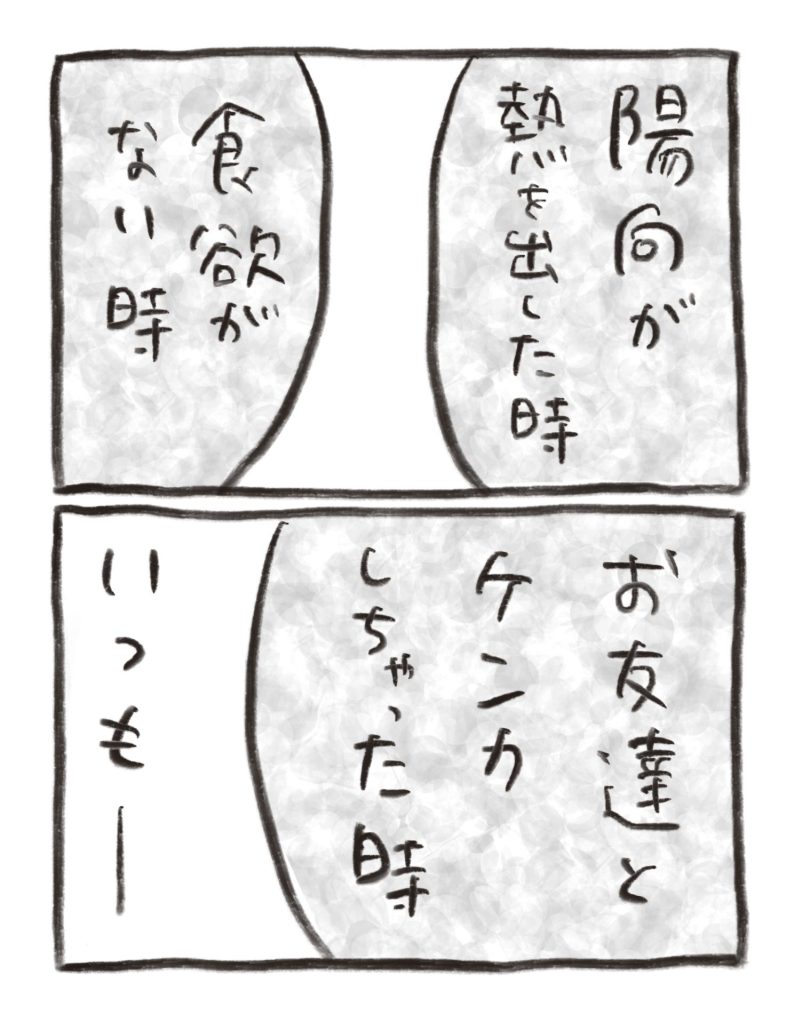 陽向が
熱を出した時
食欲が
ない時
お友達と
ケンカ
しちゃった時
いつも―